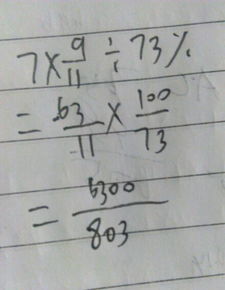 7 × 9/11 ÷ 73%
= 63/11 × 100/73
= 6300/803